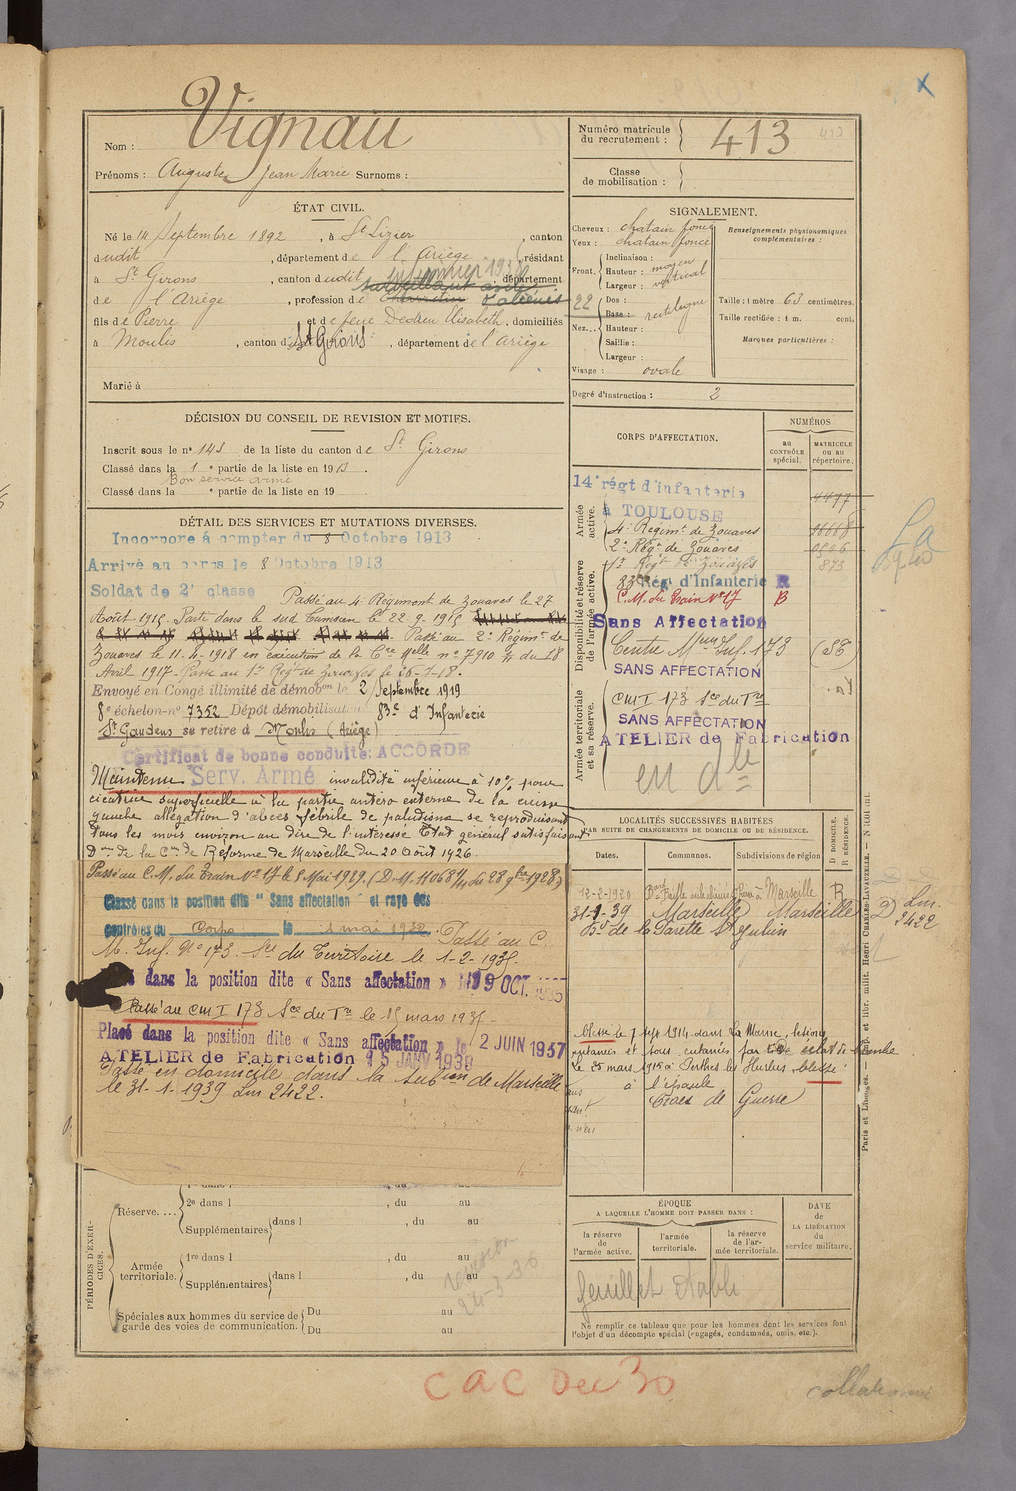 Nom : Vignau
Prénoms : Auguste Jean Marie Surnoms :
ÉTAT CIVIL.
Né le 14 Septembre 1892, à St Lizier, canton
dudit, département de l'Ariège, résidant
à St Girons, canton dudit, département
de l'Ariège, profession de charretier
fils de Pierre et de feue Dedieu Elisabeth, domiciliés
à Moulis, canton de St Girons, département de l'Ariège
Marié à
DÉCISION DU CONSEIL DE REVISION ET MOTIFS.
Inscrit sous le n° 143 de la liste du canton de St Girons
Classé dans la 1e partie de la liste en 1913.
Bon service armé
Classé dans la e partie de la liste en 19
DÉTAIL DES SERVICES ET MUTATIONS DIVERSES.
Incorporé à compter du 8 Octobre 1913
Arrivé au corps le 8 Octobre 1913
Soldat de 2e classe Passé au 4e Régiment de Zouaves le 27
Août 1915. Parti dans le sud Tunisien le 22-9-1915
Passé au 2e Régimt de
Zouaves le 11-4-1918 en exécution de la Cre Melle n° 7910 du 18
Avril 1917. Passé au 1er Régt de Zouaves le 26-7-18.
Envoyé en Congé illimité de démobon le 2 Septembre 1919
8e échelon-n° 7352 Dépôt démobilisateur 83e d'Infanterie
St Gaudens se retire à Moulis (Ariège)
Certificat de bonne conduite: ACCORDÉ
Maintenu Serv. Armé invalidité inférieure à 10% pour
cicatrice superficielle à la partie antéro externe de la cuisse
gauche allégation d'abcès fébrile de paludisme se reproduisant
tous les mois environ au dire de l'intéressé État général satisfaisant
Don de la Con de Réforme de Marseille du 20 Août 1926.
Passé au C.M. du Train N° 17 le 1 Mai 1929. (D.M. 11068 du 28 9bre 1928)
Classé dans la position dite " Sans affectation " et rayé des
contrôles du Corps le 1 mai 1932. Passé au C.
M. Inf. N° 173 Sce du Territoire le 1-2-1935.
dans la position dite « Sans affectation » 19 OCT. 1935
Passé au CMI 173 Sce du Tre le 15 mars 1937
Placé dans la position dite « Sans affectation » le 2 JUIN 1937
ATELIER de Fabrication 15 JANV 1939
Passé en domicile dans la subon de Marseille
le 31-1-1939 Lm 2422.
PÉRIODES D'EXERCICES.
Réserve....
2e dans l , du au
Supplémentaires dans l , du au
Armée territoriale.
1re dans l , du au
Supplémentaires dans l , du au
Spéciales aux hommes du service de garde des voies de communication.
Du au
Du au
revision
24-3-30
Numéro matricule du recrutement : 413
Classe de mobilisation :
SIGNALEMENT.
Cheveux : chatain foncé
Yeux : chatain foncé
Front.
Inclinaison :
Hauteur : moyen
Largeur : vertical
Nez...
Dos :
Base : rectiligne
Hauteur :
Saillie :
Largeur :
Visage : ovale
22
Renseignements physionomiques complémentaires :
Taille : 1 mètre 63 centimètres.
Taille rectifiée : 1 m. cent.
Marques particulières :
Degré d'instruction : 2
CORPS D'AFFECTATION.
NUMÉROS
au CONTRÔLE spécial.
MATRICULE ou au répertoire.
Armée active.
14e régt d'infanterie
à TOULOUSE
4e Régimt de Zouaves
2e Régt de Zouaves
1er Régt de Zouaves 873
Disponibilité et réserve de l'armée active.
83e Régt d'Infanterie R
C.M. du Train N° 17 B
Sans Affectation
Centre Mre Inf. 173
SANS AFFECTATION
Armée territoriale et sa réserve.
CMI 173 Sce du Tre
SANS AFFECTATION
ATELIER de Fabrication
en dle
LOCALITÉS SUCCESSIVES HABITÉES
PAR SUITE DE CHANGEMENTS DE DOMICILE OU DE RÉSIDENCE.
Dates. Communes. Subdivisions de région
D DOMICILE. R RÉSIDENCE.
12-2-1920 Marseille R
31-1-39 Marseille Marseille D Lm. 2422
Bd de la Valette St Julien
blessé le 7 Sept 1914 dans La Marne, lésions
cutanées et sous cutanées par éclat de bombe
Le 25 mars 1915 à Perthes les Hurlus, blessé
à l'épaule
Croix de Guerre
ÉPOQUE
A LAQUELLE L'HOMME DOIT PASSER DANS :
la réserve de l'armée active.
l'armée territoriale.
la réserve de l'armée territoriale.
DATE de LA LIBÉRATION du service militaire.
feuillet établi
Ne remplir ce tableau que pour les hommes dont les services font
l'objet d'un décompte spécial (engagés, condamnés, omis, etc.).
CAC Dec 30
collationné